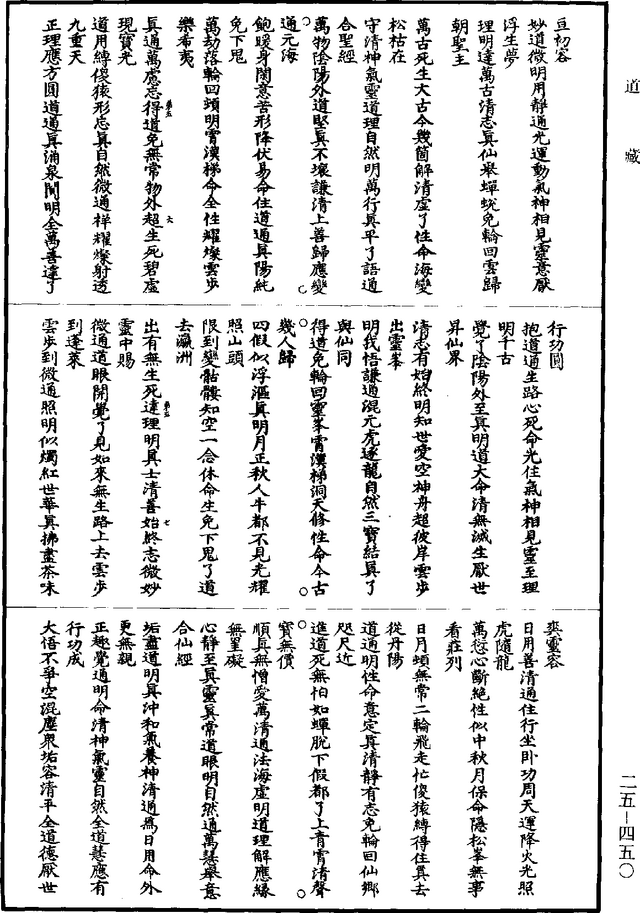 道藏
豆初容
妙道微明用靜通光運動氣神相見靈意厭
浮生夢
理明達萬古清志真仙舉蟬蛻免輪回雲歸
朝聖主
萬古死生大古今幾箇解清虛了性命海變
松枯在
守清神氣靈道理自然明萬行真平了語通
合聖經
萬物陰陽外道堅真不壞謙清上善歸應變
通元海
飽暖身閑意苦形降伏易命住道通真陽純
免下鬼
萬劫落輪回頭明霄漢梯命全性耀燦雲步
樂希夷
真通萬慮忘得道免無常物外超生死碧虛
第五
六
現寶光
道用縛傻猿形忘真自然微通祥耀燦射透
九重天
正理應方圓道通真涌泉開明全萬善達了
行功圓
抱道通生路心死命光住氣神相見靈至理
明千古
覺了陰陽外至真明道大命清無滅生厭世
昇仙界
清志有始終明知世愛空神舟超彼岸雲步
出靈峯
明我悟謙通混元虎逐龍自然三寶結真了
與仙同
得道免輪回靈峯霄漢梯洞天修性命今古
幾人歸
四假似浮漚真明月正秋人牛都不見光耀
照山頭
限到變骷髏知空一合休命生免下鬼了道
去瀛洲
出有無生死達理明真士清善始終志微妙
第五
七
靈中賜
微通道眼開覺了見如來無生路上去雲步
到蓬萊
雲步到微通照明似燭紅世華真拂盡茶味
爽靈容
日用善清通住行坐卧功周天運降火光照
虎隨龍
萬愆心斷絕性似中秋月保命隱松峯無事
看莊列
日月頻無常二輪飛走忙傻猿縛得住真去
從丹陽
道通明性命意定真清靜有志免輪回仙鄉
咫尺近
進道死無怕如蟬脫下假都了上青霄清聲
寶無價
順真無憎愛萬清通法海虛明道理解應緣
無罣礙
心靜至真靈真常道眼明自然通萬慧舉意
合仙經
垢盡道明真沖和氣養神清通為日用命外
更無親
正趣覺通明命清神氣靈自然全道慧應有
行功成
大悟不爭空混塵衆垢容清平全道德厭世
二五－四五〇